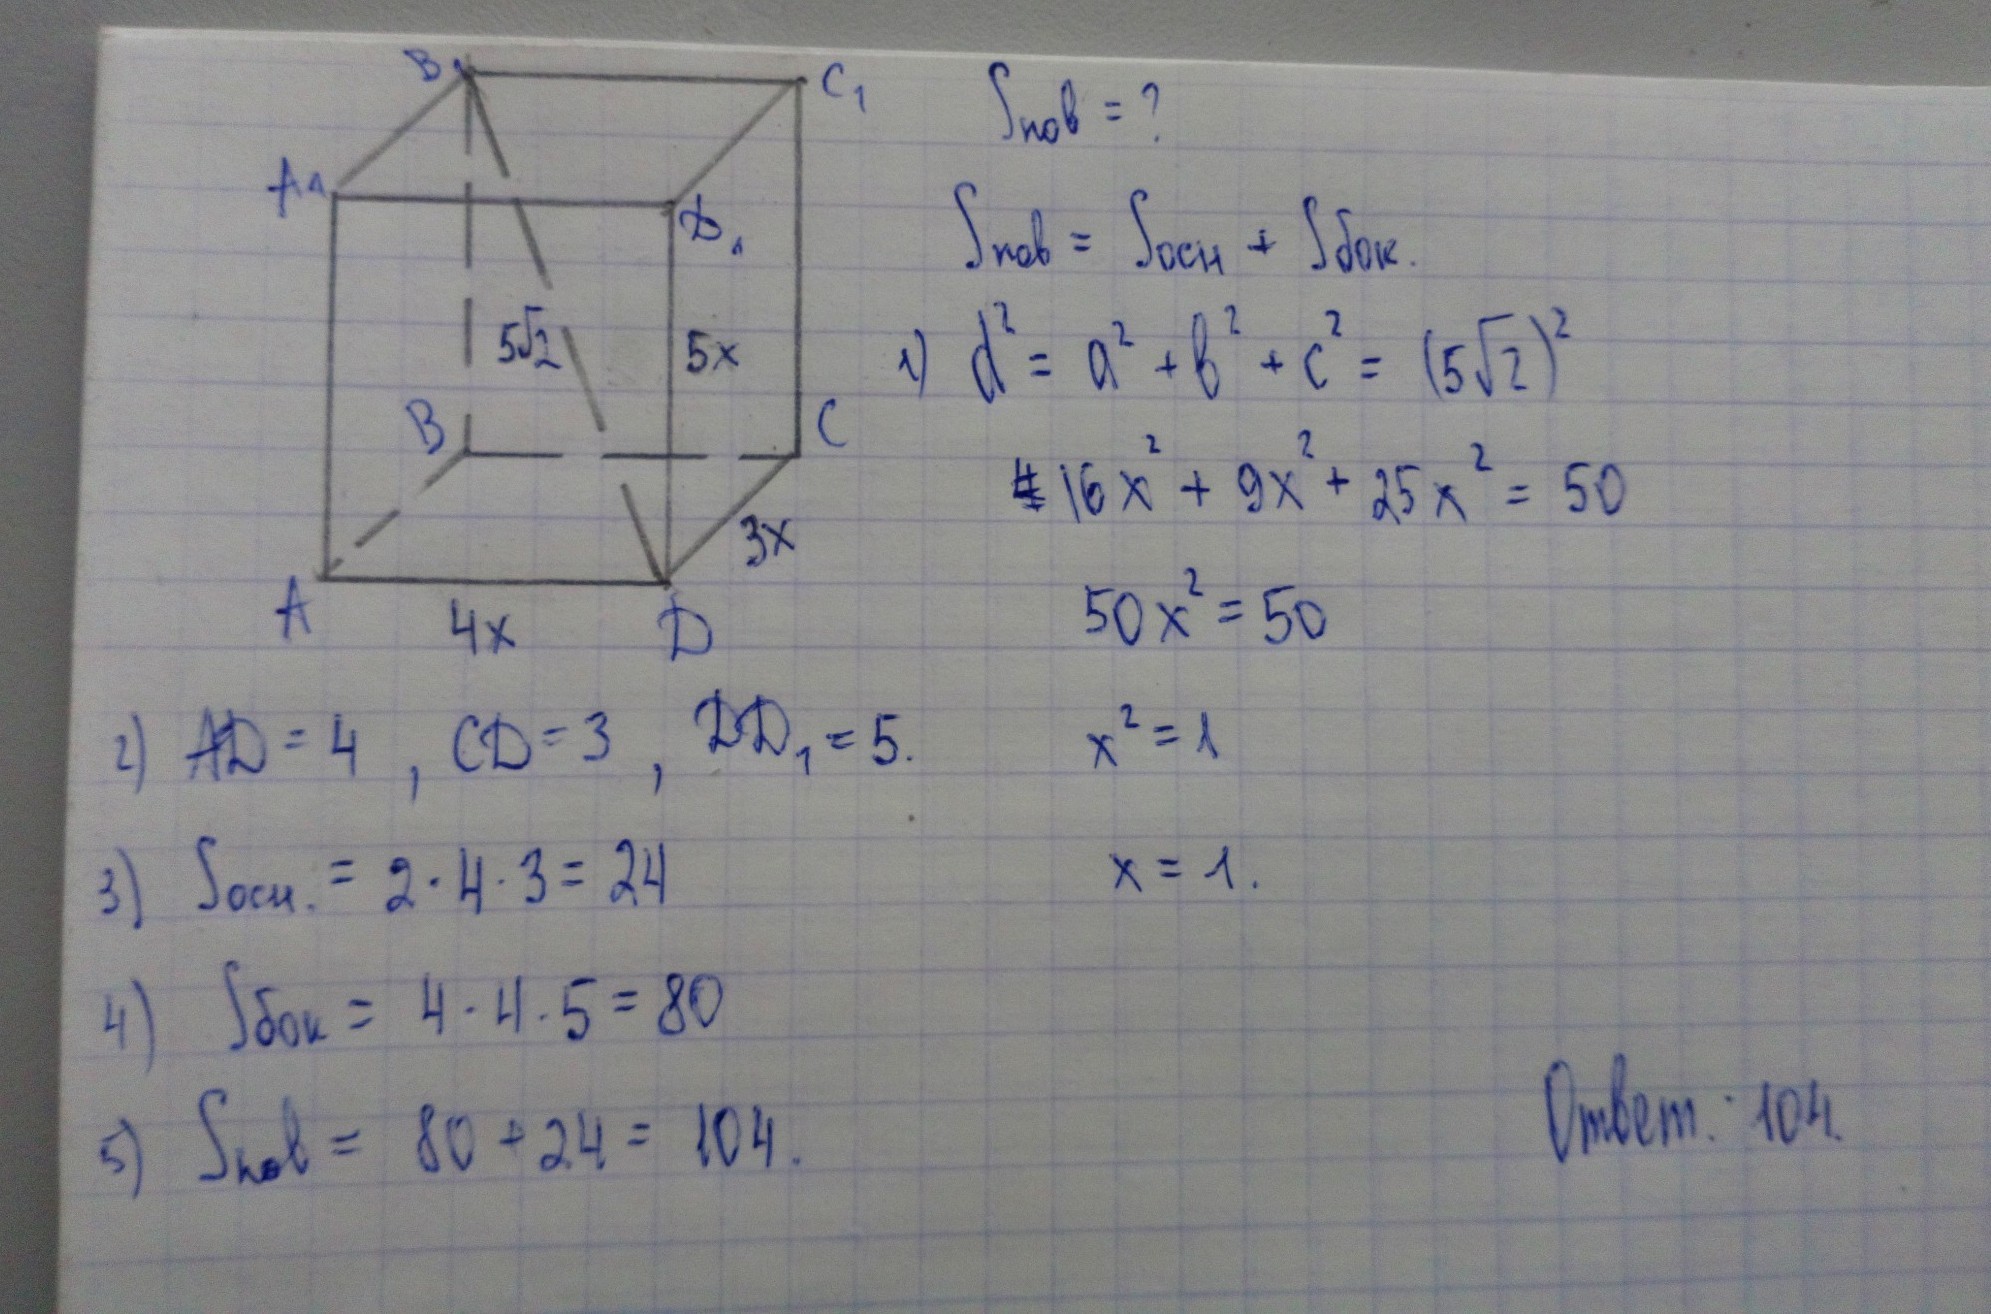 B₁
C₁
A₁
D₁
5√2
5x
B
C
3x
A
4x
D
Sпов = ?
Sпов = Sосн + Sбок.
1) d² = a² + b² + c² = (5√2)²
16x² + 9x² + 25x² = 50
50x² = 50
x² = 1
x = 1.
2) AD = 4, CD = 3, DD₁ = 5.
3) Sосн. = 2·4·3 = 24
4) Sбок = 4·4·5 = 80
5) Sпов = 80 + 24 = 104.
Ответ: 104.